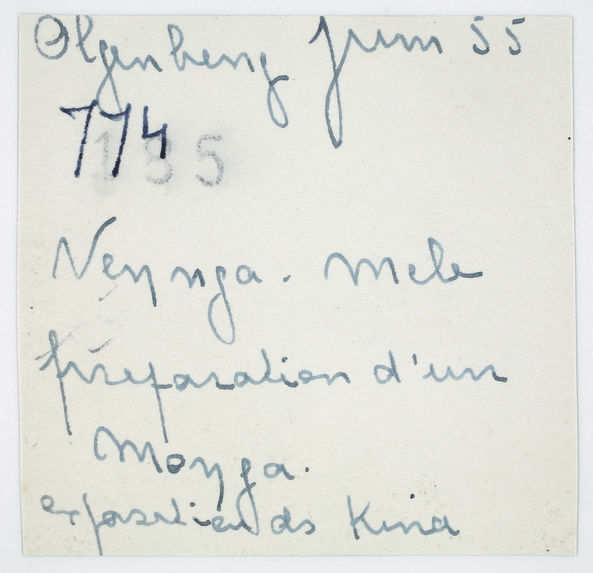 Olgenberg Juin 55
774
135
Neynga. Mele
préparation d'un
Monga.
exposition ds Kina